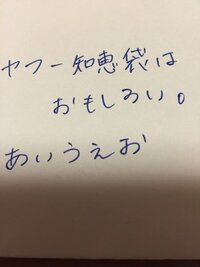 ヤフー知恵袋は
おもしろい。
あいうえお